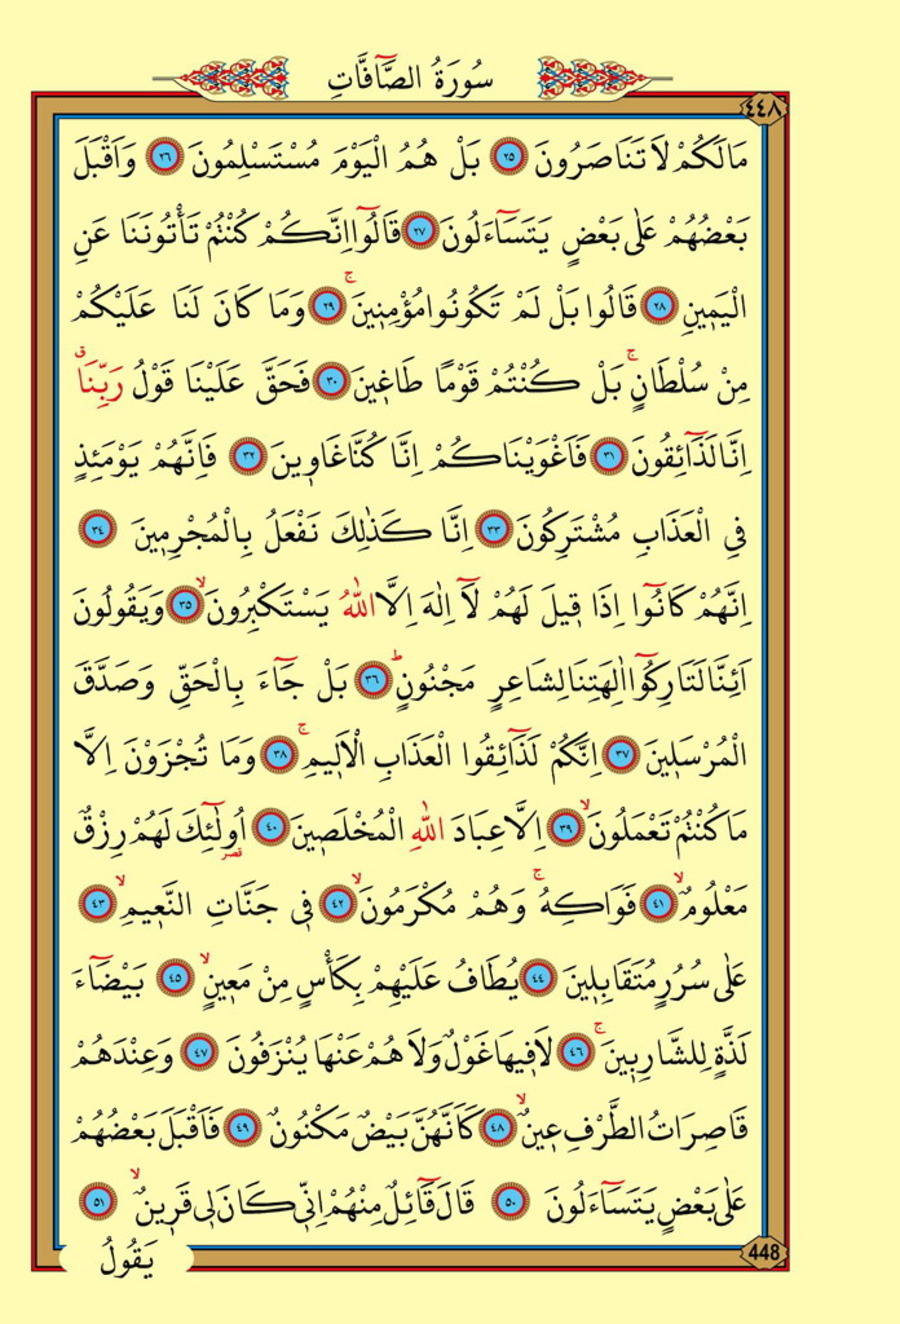 سُورَةُ الصَّٓافَّاتِ
٤٤٨
مَالَكُمْ لَا تَنَاصَرُونَ ٢٥ بَلْ هُمُ الْيَوْمَ مُسْتَسْلِمُونَ ٢٦ وَاَقْبَلَ
بَعْضُهُمْ عَلٰى بَعْضٍ يَتَسَٓاءَلُونَ ٢٧ قَالُٓوا اِنَّكُمْ كُنْتُمْ تَأْتُونَنَا عَنِ
الْيَم۪ينِ ٢٨ قَالُوا بَلْ لَمْ تَكُونُوا مُؤْمِن۪ينَۚ ٢٩ وَمَا كَانَ لَنَا عَلَيْكُمْ
مِنْ سُلْطَانٍۚ بَلْ كُنْتُمْ قَوْمًا طَاغ۪ينَ ٣٠ فَحَقَّ عَلَيْنَا قَوْلُ رَبِّنَاۗ
اِنَّا لَذَٓائِقُونَ ٣١ فَاَغْوَيْنَاكُمْ اِنَّا كُنَّا غَاو۪ينَ ٣٢ فَاِنَّهُمْ يَوْمَئِذٍ
فِي الْعَذَابِ مُشْتَرِكُونَ ٣٣ اِنَّا كَذٰلِكَ نَفْعَلُ بِالْمُجْرِم۪ينَ ٣٤
اِنَّهُمْ كَانُٓوا اِذَا ق۪يلَ لَهُمْ لَٓا اِلٰهَ اِلَّا اللّٰهُ يَسْتَكْبِرُونَۙ ٣٥ وَيَقُولُونَ
اَئِنَّا لَتَارِكُٓوا اٰلِهَتِنَا لِشَاعِرٍ مَجْنُونٍۜ ٣٦ بَلْ جَٓاءَ بِالْحَقِّ وَصَدَّقَ
الْمُرْسَل۪ينَ ٣٧ اِنَّكُمْ لَذَٓائِقُوا الْعَذَابِ الْاَل۪يمِۚ ٣٨ وَمَا تُجْزَوْنَ اِلَّا
مَا كُنْتُمْ تَعْمَلُونَۙ ٣٩ اِلَّا عِبَادَ اللّٰهِ الْمُخْلَص۪ينَ ٤٠ اُو۬لٰٓئِكَ لَهُمْ رِزْقٌ
قصر
مَعْلُومٌۙ ٤١ فَوَاكِهُۚ وَهُمْ مُكْرَمُونَۙ ٤٢ ف۪ي جَنَّاتِ النَّع۪يمِۙ ٤٣
عَلٰى سُرُرٍ مُتَقَابِل۪ينَ ٤٤ يُطَافُ عَلَيْهِمْ بِكَأْسٍ مِنْ مَع۪ينٍۙ ٤٥ بَيْضَٓاءَ
لَذَّةٍ لِلشَّارِب۪ينَۚ ٤٦ لَا ف۪يهَا غَوْلٌ وَلَا هُمْ عَنْهَا يُنْزَفُونَ ٤٧ وَعِنْدَهُمْ
قَاصِرَاتُ الطَّرْفِ ع۪ينٌۙ ٤٨ كَاَنَّهُنَّ بَيْضٌ مَكْنُونٌ ٤٩ فَاَقْبَلَ بَعْضُهُمْ
عَلٰى بَعْضٍ يَتَسَٓاءَلُونَ ٥٠ قَالَ قَٓائِلٌ مِنْهُمْ اِنّ۪ي كَانَ ل۪ي قَر۪ينٌۙ ٥١
448
يَقُولُ